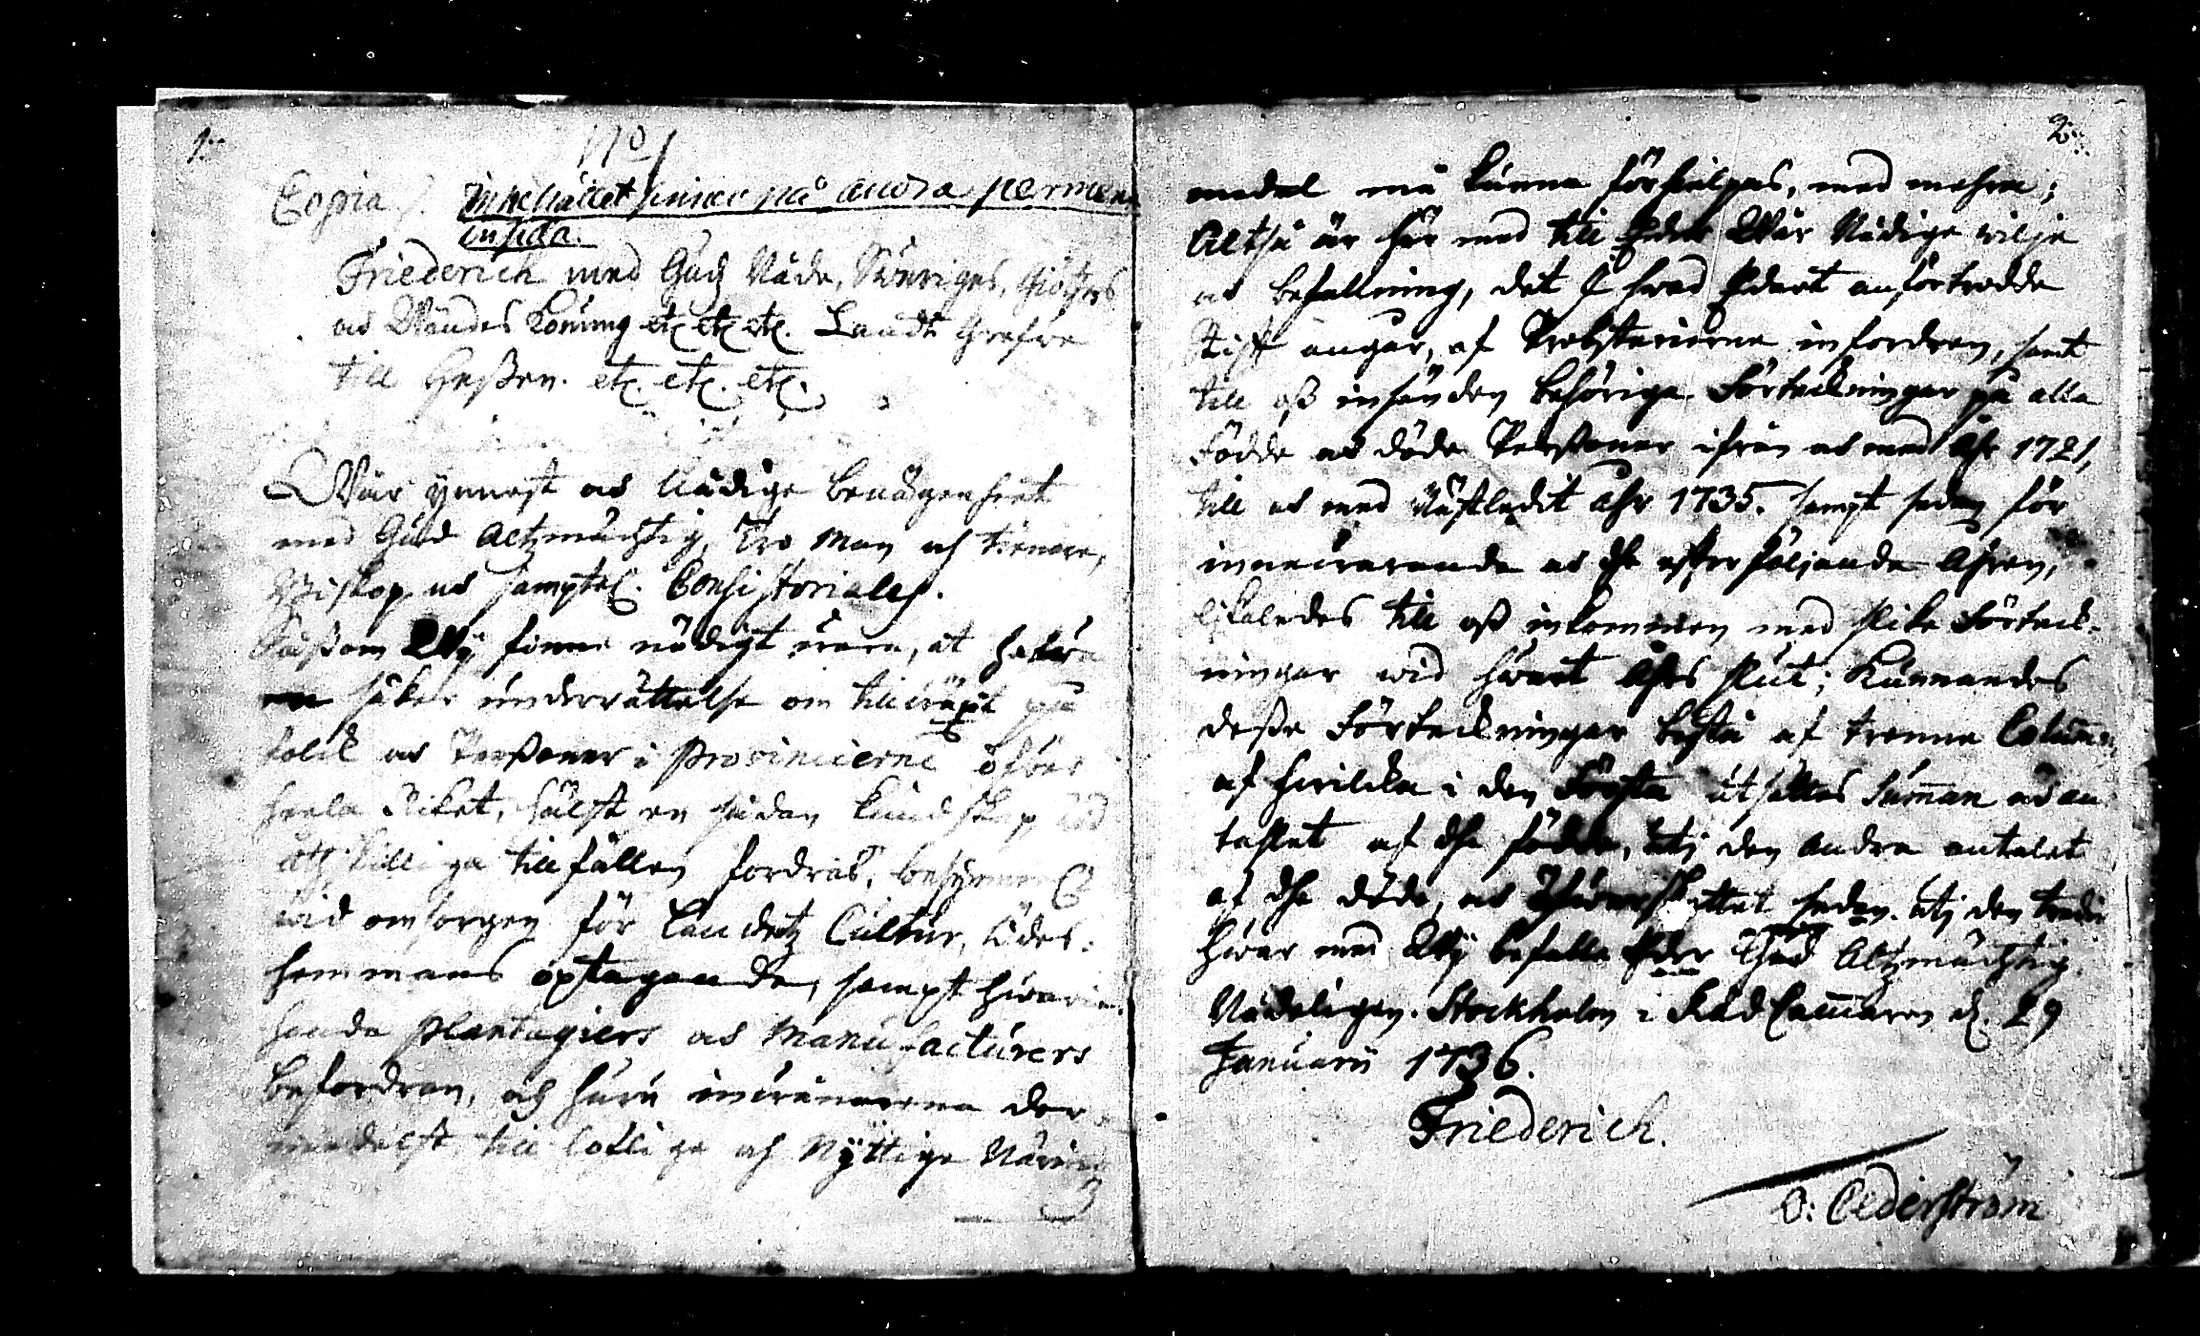 1.
No 1
Copia. Innehållet finnes på andra permens
insida.
Friederich med Gudz Nåde, Sweriges, Giöthes
och Wändes Konung etc etc etc. Landt Grefve
till Hessen. etc. etc. etc.
Wår ynnest och Nådige benägenheet
med Gud Altzmächtig, Tro Man och tienare,
Biskop och samptel. Consistoriales.
Såssom Wij finne nödigt wara, at hafwa
en säker underrättelse om tillwäxt på
folck och Perssoner i Provincierne öfwer
heela Riket, hälst en sådan kundskap wid
åtskilliga tillfällen fordras,
wid omsorgen för Landetz Cultur, Ödes-
hemmans optagande, sampt hwarie-
handa Plantagiers och Manufacturers
befordran, och huru inwånarena der-
medelst till lofliga och Nyttige Näring
2.
medel må kunna förhielpas, med mehra;
Altså är här med till Eder Wår Nådige wilje
och befallning, det I hwad Edert anförtrodde
Stift angår, af Probsterierne infordren, samt
till oss insänden behörige Förteckningar på alla
Födde och döde Perssoner ifrån och med Åhr 1721,
till och med Nästledit Åhr 1735. sampt sedan för
innewarande och dhe efterföljande Åhren,
likaledes till oss inkommen med slike Förteck-
ningar wid hwart Åhrs slut; Kunnandes
desse Förteckningar bestå af trenne Columner,
af hwilcka i den Första utsättes Summan och an-
tahlet af dhe födde, uti den andra antalet
af dhe döde, och Öfwerskottet sedan uti den tredie
Hwar med Wij befalle Eder Gud Altzmächtig
Nådeligen. Stockholm i RådCammaren d. 29
Januarii 1736.
Friederich.
O: Cederström